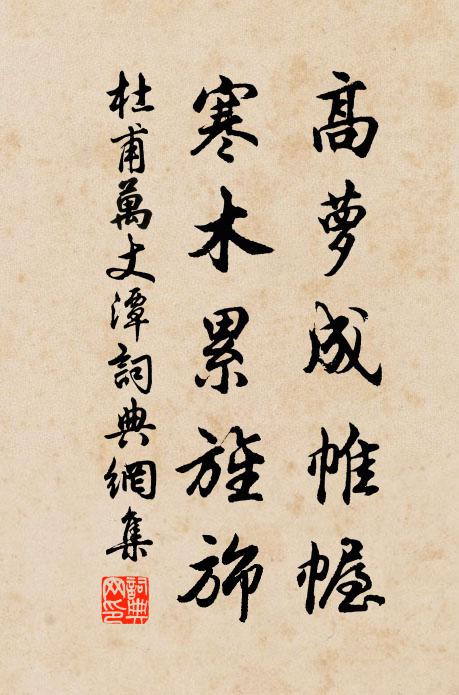 高萝成帷幄
寒木累旌旆
杜甫萬丈潭詞典網集
詞典网印